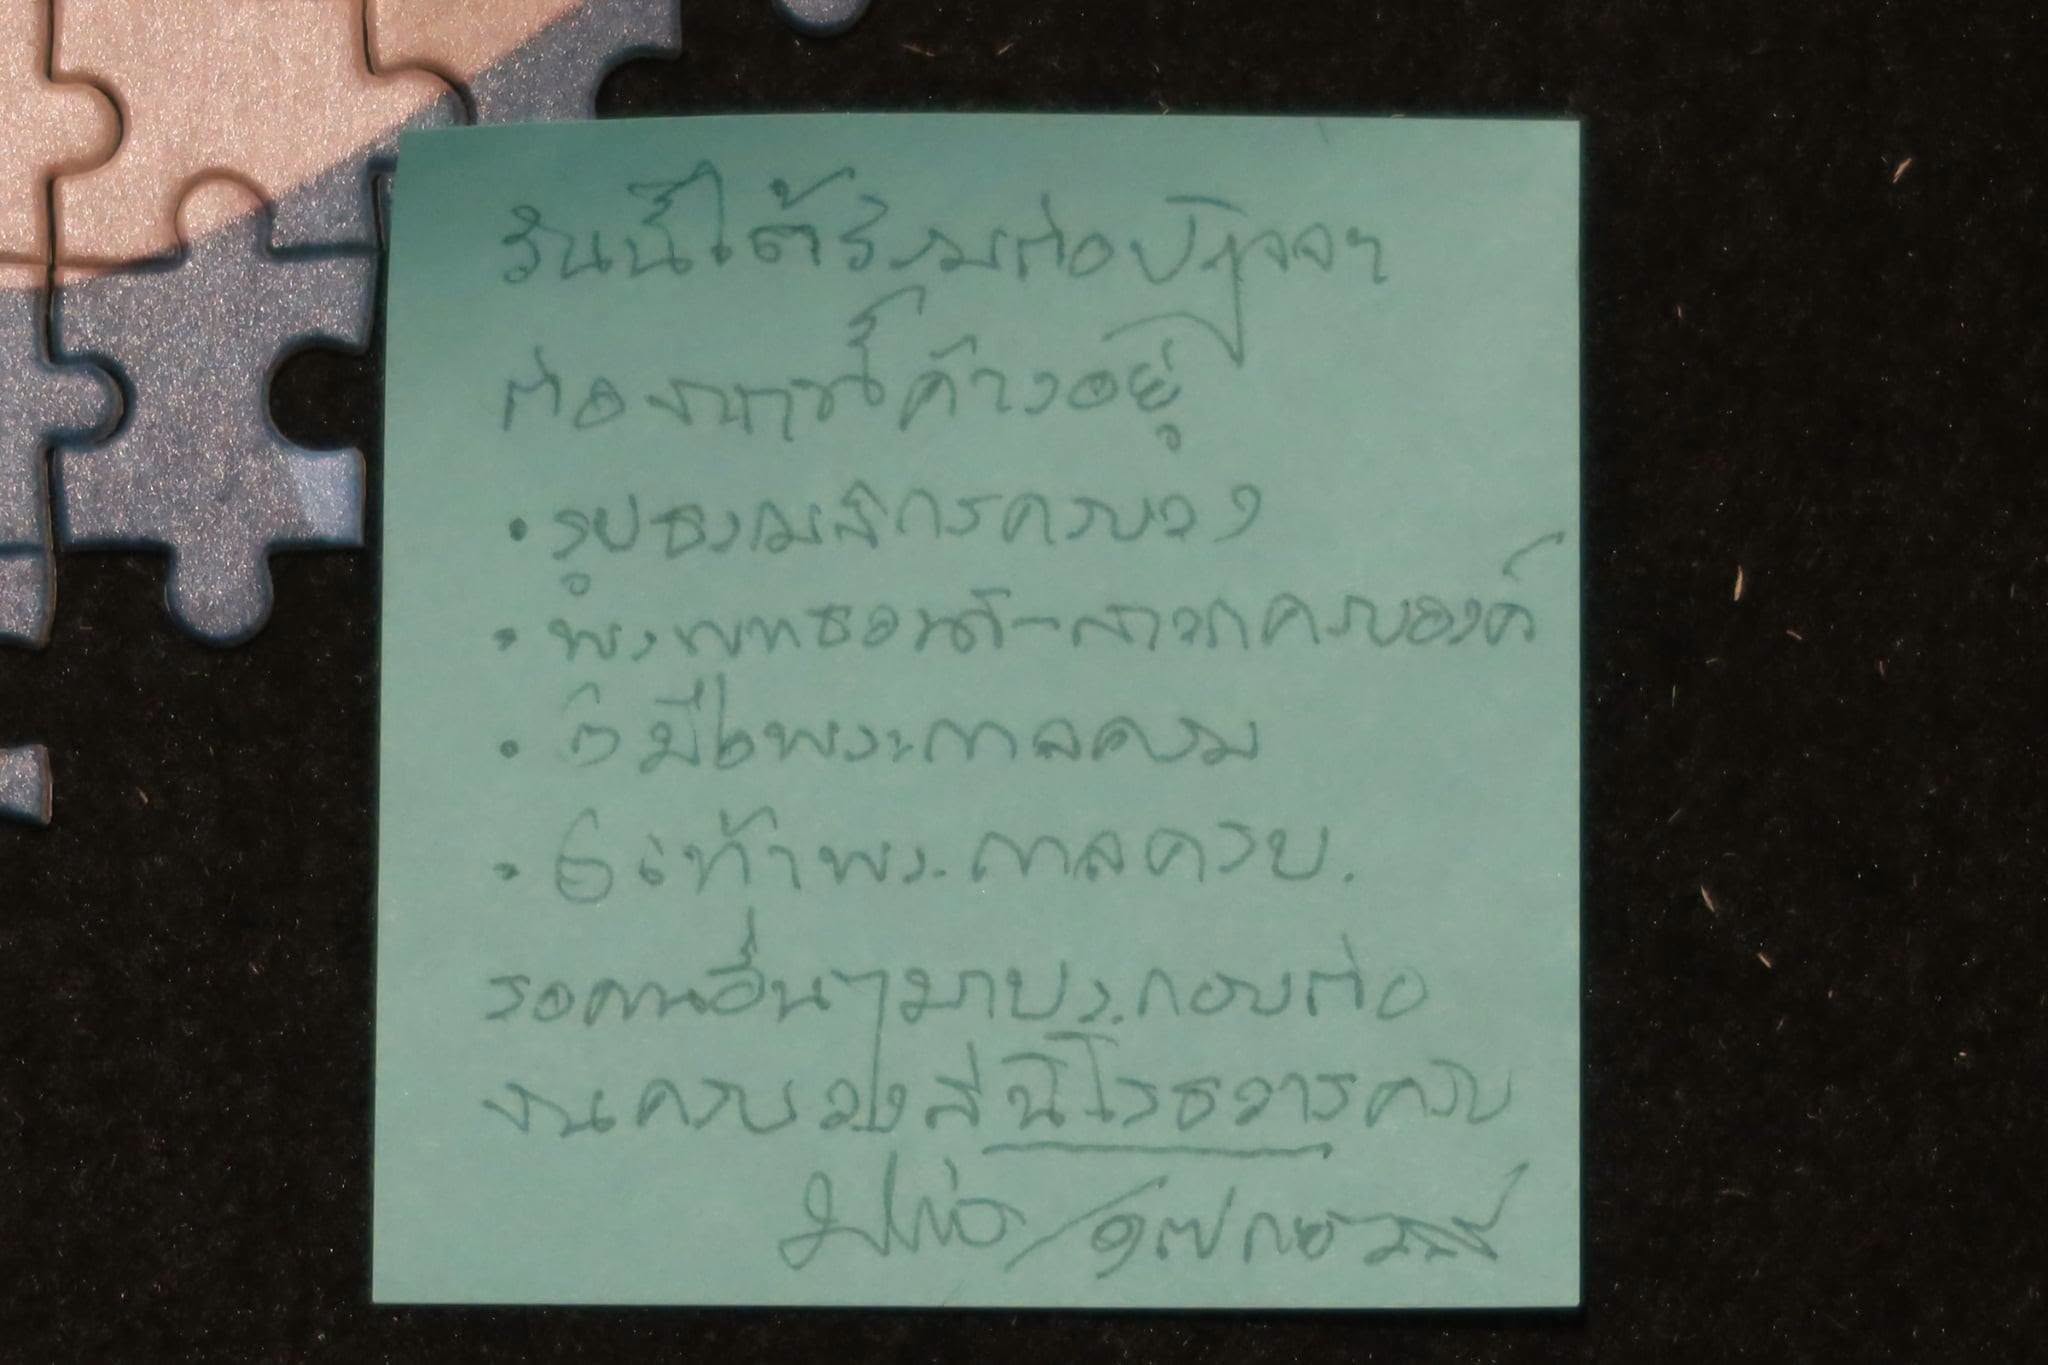 วันนี้ได้ร่วมต่อ
ต่องานที่ค้างอยู่
• รูปธรรมจักรครบวง
• พระพุทธองค์-สาวกครบองค์
• มือพระกาลครบ
• ๖ เท้าพระกาลครบ.
รอคนอื่นๆ มาประกอบต่อ
จนครบวงสี่นิโรธวารครบ
/ ๑๗ กย